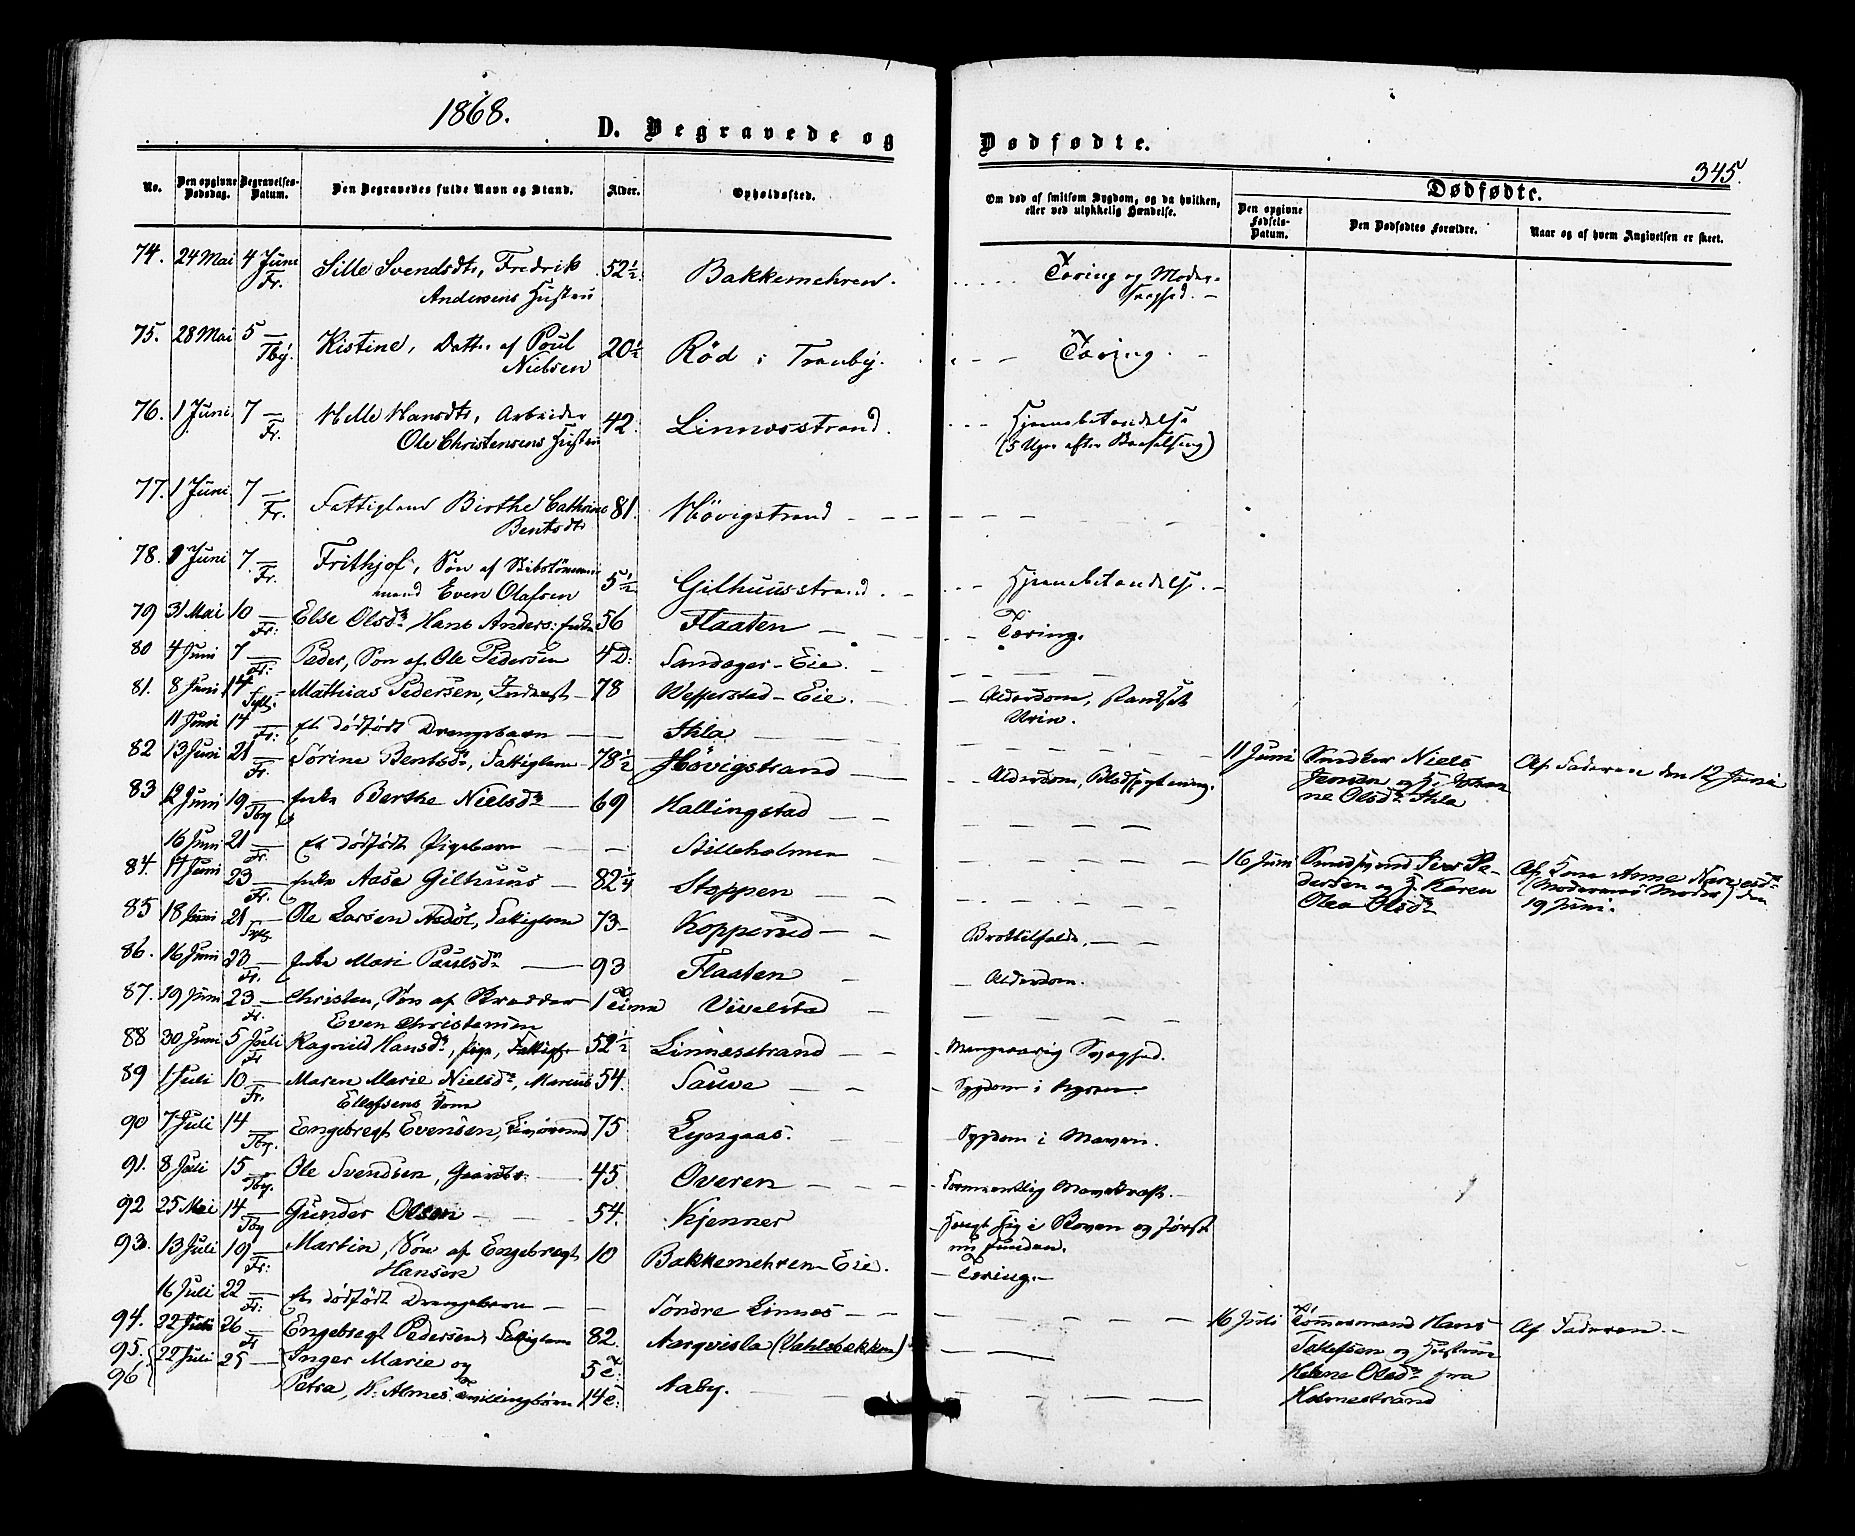 1868.
D. Begravede og Dødfødte.
345.
No.
Den opgivne Dødsdag.
Begravelses-Datum.
Den Begravedes fulde Navn og Stand.
Alder.
Opholdssted.
Om død af smitsom Sygdom, og da hvilken, eller ved ulykkelig Hændelse.
Dødfødte.
Den opgivne Fødsels-Datum.
Den Dødfødtes Forældre.
Naar og af hvem Angivelsen er skeet.
74. 24 Mai 4 Juni Fr. Sille Svendsdtr, Fredrik 52½ Bakkemehren. Tæring og Moder-
Andersens Hustru
75. 28 Mai 5 — Tby. Kistine, Datter af Poul 20½ Rød i Tranby. Tæring.
Nielsen
76. 1 Juni 7 — Fr. Helle Hansdtr, Arbeider 42. Linnæsstrand. Hjernebetændelse
Ole Christensens Hustru (5 Uger efter Barselseng)
77. 1 Juni 7 — Fr. Fattiglem Birthe Cathrine 81. Høvigstrand
Bentsdtr
78. Juni 7 — Fr. Frithjof, Søn af Skibstømmer-
mand Even Olafsen 5½ Gilhuusstrand. Hjernebetændelse.
79 31 Mai 10 — Fr: Else Olsdr Hans Anders: Enke 56 Flaaten Tæring.
80 4 Juni 7 — Fr: Peder, Søn af Ole Pedersen 4 D: Sandager-Eie.
81. 8 Juni 14 — Syll. Mathias Pedersen, Inderst 78 Wefferstad-Eie. Alderdom,
Urin.
11 Juni 14 — Fr: Et dødfødt Drengebarn Ihla 11 Juni Smdker Niels Af Faderen den 12 Juni
Jensen og H. Johan-
ne Olsdr Ihla
82 13 Juni 21 — Fr. Sørine Bentsdr, Fattiglem 78½ Høvigstrand Alderdom, Blodspytning.
83 12 Juni 19 — Tby Enke Berthe Nielsdr 69 Hallingstad
16 Juni 21 — Fr. Et dødfødt Pigebarn Stilleholmen 16 Juni Iver Pe-
dersen og H. Karen
Olea Olsdr
Af Kone Anne
(Moderens Moder) den
19 Juni.
84. 17 Juni 23 — Fr. Enke Aase Gilhuus 82¼ Stoppen
85 18 Juni 21 — Syll. Ole Larsen Asdøl, Fattiglem 73 Kopperud Broktilfælde.
86. 16 Juni 23 — Fr. Enke Mari Paulsdr 93 Flaaten Alderdom.
87. 19 Juni 23 — Fr. Christen, Søn af Skrædder 1 Time Vivelstad
Even Christensen
88 30 Juni 5 Juli Fr Ragnild Hansdr, Pige, Fattigl. 52½ Linnæsstrand Mangeaarig Svaghed.
89 1 Juli 10 — Fr. Maren Marie Nielsdr, Marcus 54. Sauve Sygdom i
Ellefsens Kone
90 7 Juli 14 — Tby. Engebregt Evensen, 75 Lyngaas. Sygdom i Maven.
91. 8 Juli 15 — Tby. Ole Svendsen, Gaardbr. 45 Overen Formeentlig Mavekræft.
92 25 Mai 14 — Tby Gunder Olsen 54. Kjenner Hængt sig i Skoven og først
nu funden.
93. 13 Juli 19 — Fr: Martin, Søn af Engebregt 10 Bakkemehren-Eie. Tæring.
Hansen
16 Juli 22 — Fr: Et dødfødt Drengebarn Søndre Linnes 16 Juli Tømmermand Hans Af Faderen.
Tollefsen og Hustru
Helene Olsdr fra
Holmestrand
94. 22 Juli 26 — Fr Engebregt Pedersen, Fattiglem 82. Aarqvisla (Vahlsbækken)
95. 22 Juli 25 — Inger Marie og 5
96 Petra, H. Almes Tvillingbørn 14 Aaby.